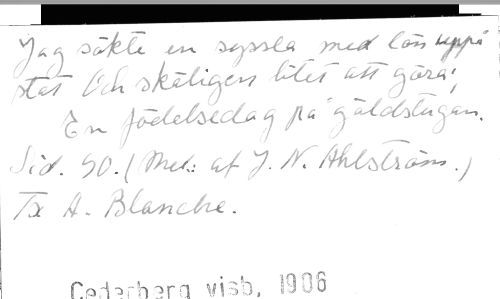 Jag sökte en syssla med lön uppå
stat Och skäligen litet att göra;
En födelsedag på gäldstugan.
Sid. 90. (Mel: af J. N. Ahlström.)
Tx A. Blanche.
Cederberg visb, 1906